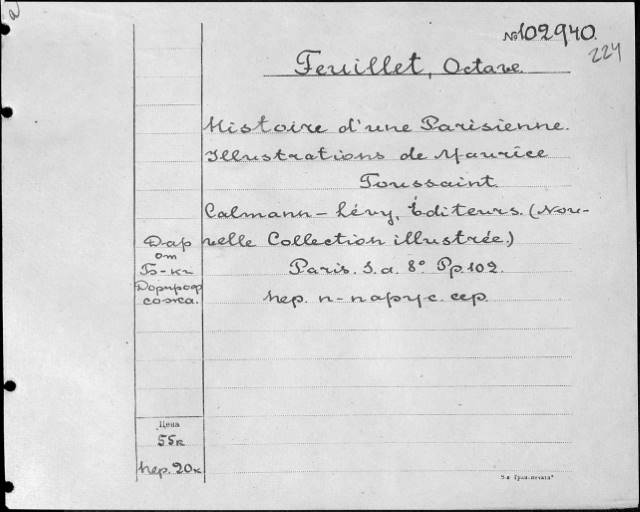 №102940.
224
Feuillet, Octave.
Histoire d'une Parisienne.
Illustrations de Maurice
Toussaint.
Calmann-Lévy, Éditeurs. (Nou-
velle Collection illustrée.)
Paris. S.a. 8° Pp. 102.
пер. п-парус. сер.
Дар
от
Б-ки
Дорпроф
сожа.
Цена
55к
пер. 20к